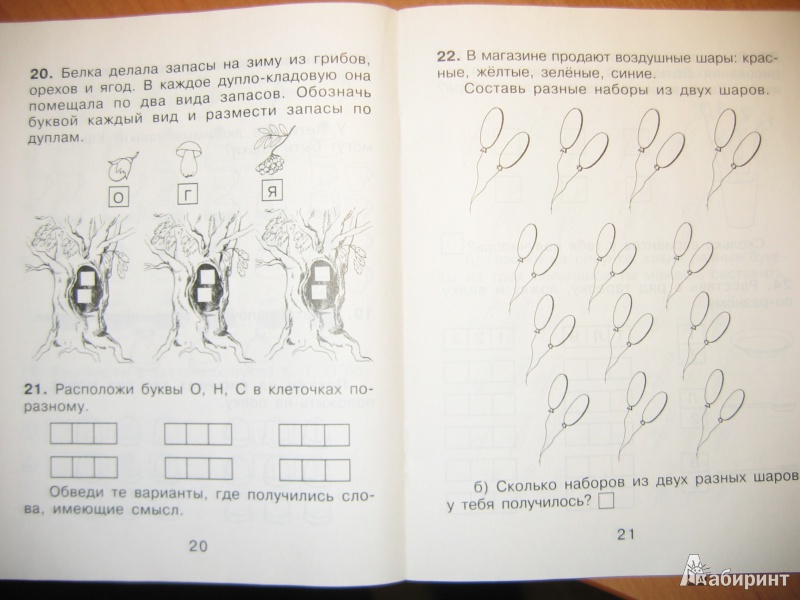 20. Белка делала запасы на зиму из грибов,
орехов и ягод. В каждое дупло-кладовую она
помещала по два вида запасов. Обозначь
буквой каждый вид и размести запасы по
дуплам.
О Г Я
21. Расположи буквы О, Н, С в клеточках по-
разному.
Обведи те варианты, где получились сло-
ва, имеющие смысл.
20
22. В магазине продают воздушные шары: крас-
ные, жёлтые, зелёные, синие.
Составь разные наборы из двух шаров.
б) Сколько наборов из двух разных шаров
у тебя получилось?
21
Лабиринт